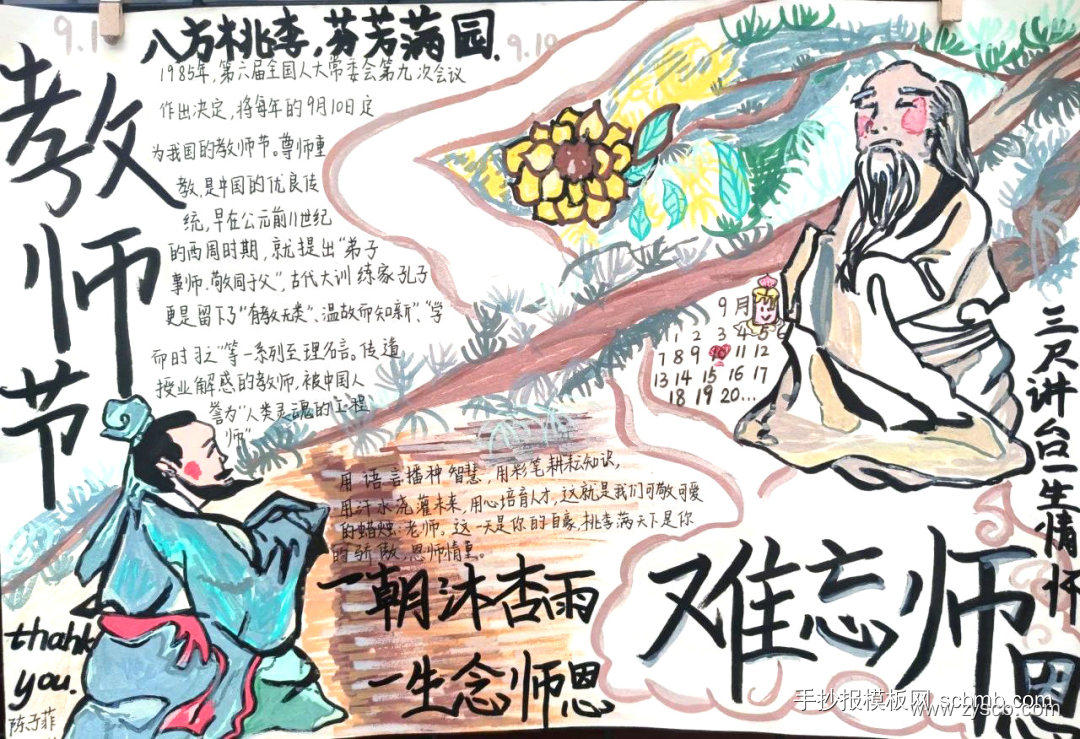 9.10
八方桃李,芬芳满园.
9.10
教师节
1985年,第六届全国人大常委会第九次会议
作出决定,将每年的9月10日定
为我国的教师节。尊师重
教,是中国的优良传
统,早在公元前11世纪
的西周时期,就提出"弟子
事师,敬同于父",古代大训练家孔子
更是留下了"有教无类"、"温故而知新"、"学
而时习之"等一系列至理名言。传道
授业解惑的教师,被中国人
誉为"人类灵魂的工程
师"
9月
1 2 3 4 5
7 8 9 10 11 12
13 14 15 16 17
18 19 20...
三尺讲台一生情怀
用语言播种智慧,用彩笔耕耘知识,
用汗水浇灌未来,用心培育人才,这就是我们可敬可爱
的蜡烛 老师。这一天是你的自豪,桃李满天下是你
的骄傲,恩师情重。
一朝沐杏雨
一生念师恩
难忘师恩
thank
you.
陈子菲
手抄报模板网 scbmb.com
www.zysco.com